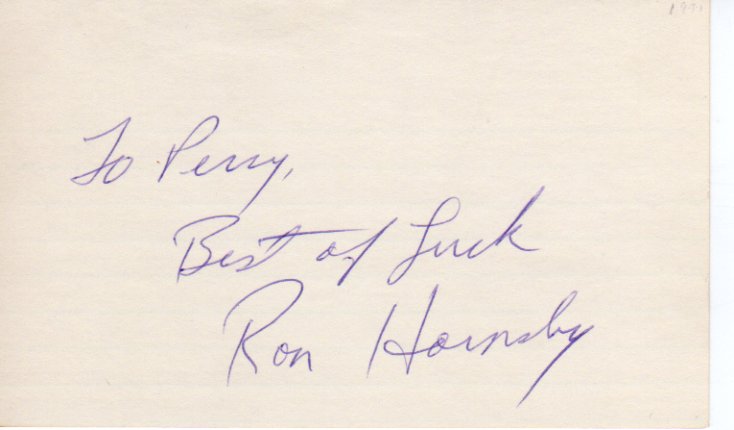 To Perry,
Best of Luck
Ron Hornsby